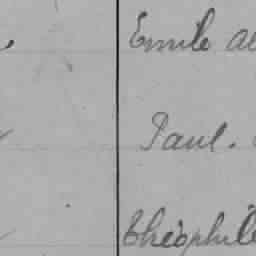 Emile
Paul.
théophile